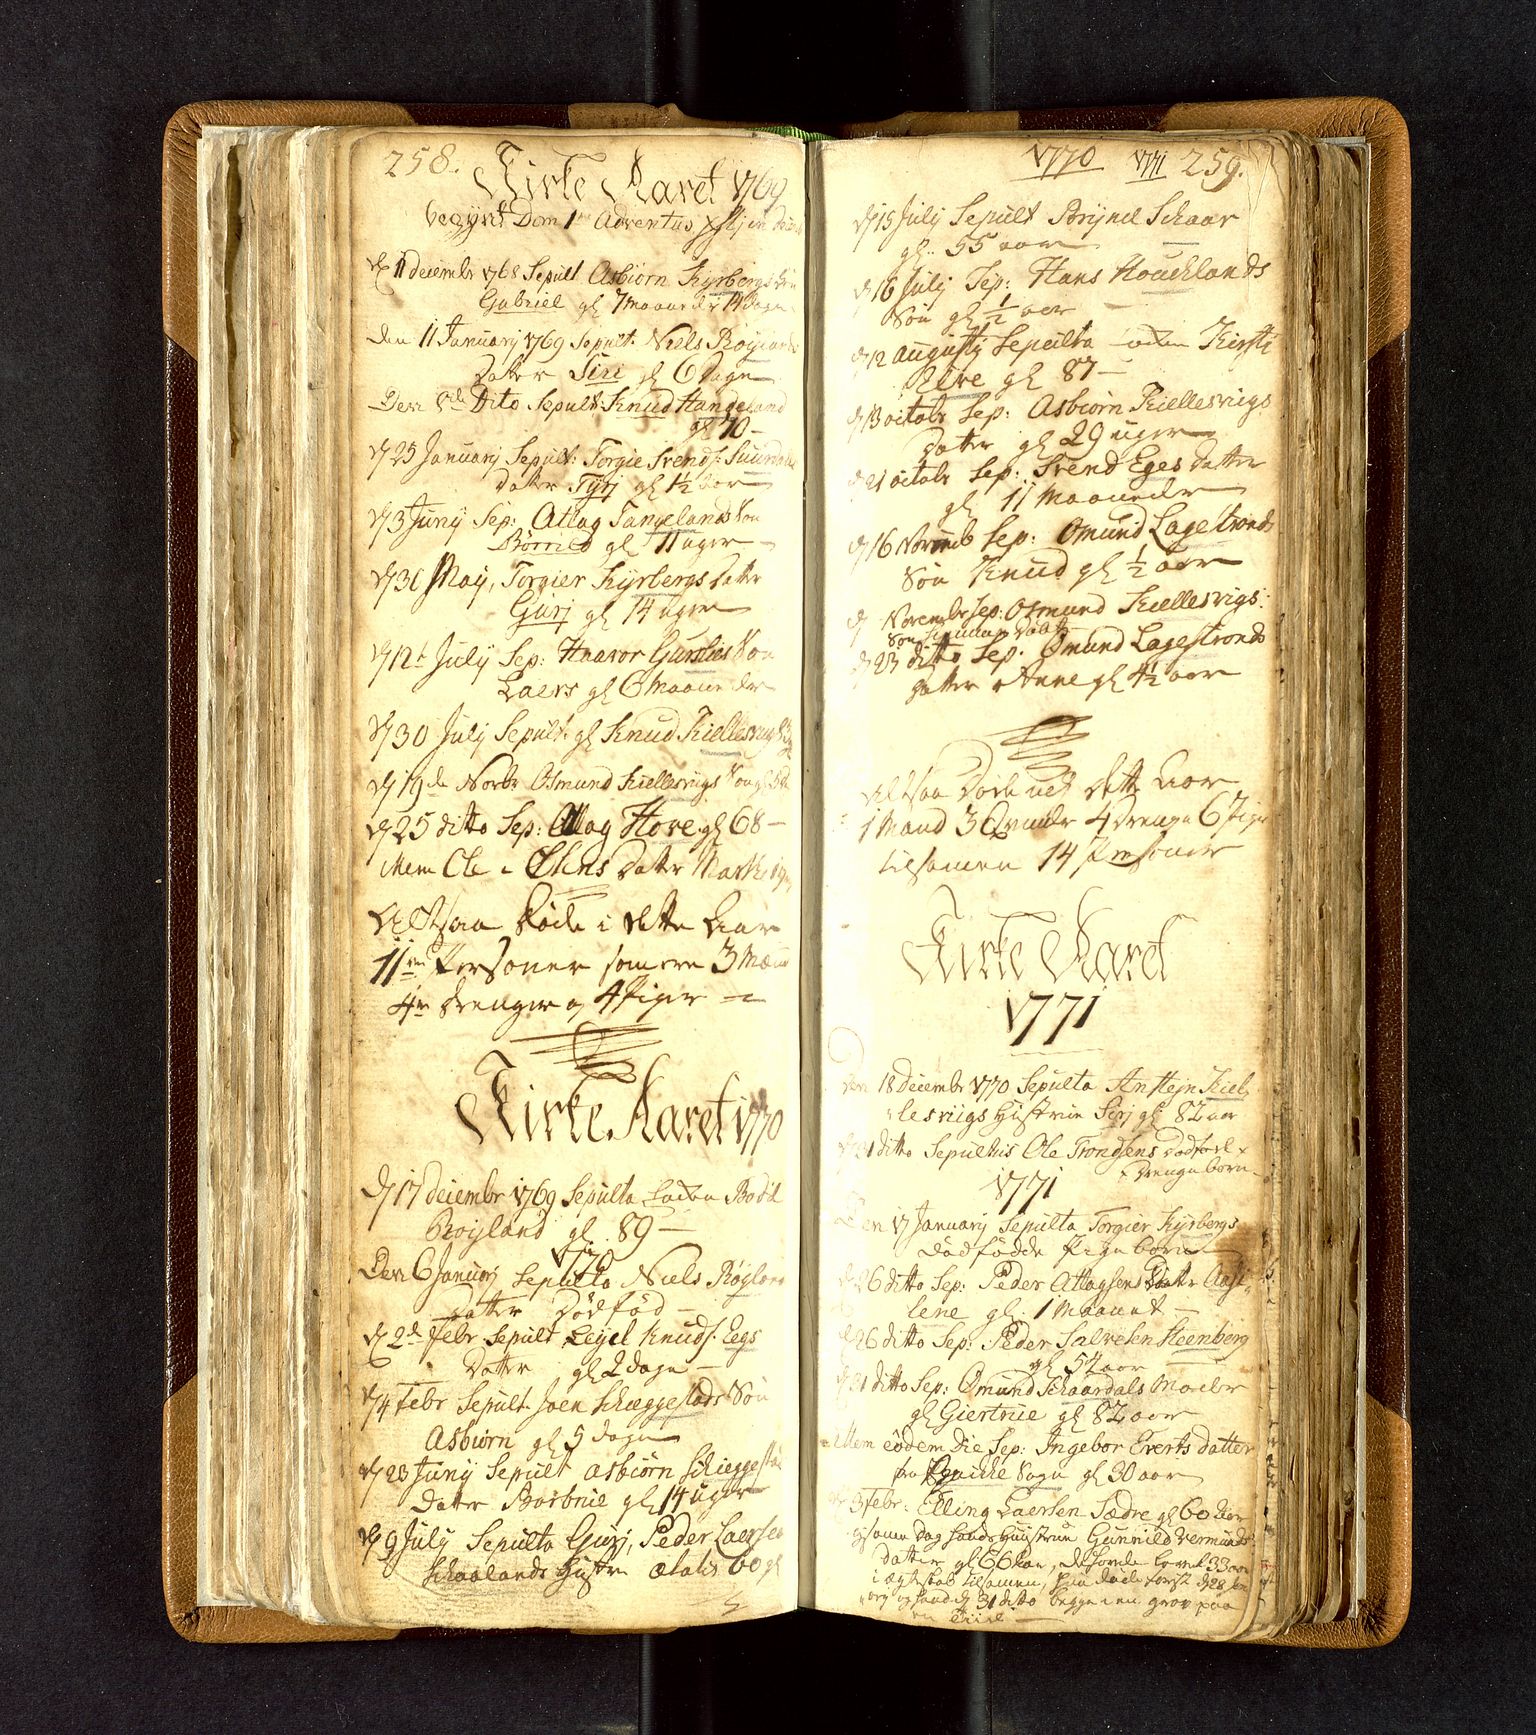 258.
Kirke Aaret 1769
begynt Dom 1 Adventus
d 11 Decembr 1768 Sepult Asbiørn Kyrbergs Søn
Gabriel gl 7 maaneder 14 dage
Den 11 January 1769 Sepult. Niels Røylands
Datter Siri gl 6 Dage
Den Dito Sepult: Knud Hangeland
gl 70 -
d 25 January Sepult: Torgie Svends:
Datter Tyrj gl 1½ aar
d 3 Juny Sep: Attag Tangelands Søn
Børrild gl 11 uger
d 30 May, Torgier Kyrbergs Datter
Gurj gl 14 uger
d 12t July Sep: Haavor Gurslies Søn
Laers gl 6 maaneder
d 30 July Sepult. gl Knud Kiellesviigs
d 19de Novbr Osmund Kiellesviigs Søn gl
d 25 ditto Sep: Attag Hove gl 68 -
Item Ole Datter Marthe
Altsaa døde i dette Aar
11 Personer som ere 3 Mænd
4re drenger og 4 Piger
Kirke Aaret 1770
d 17 decembr 1769 Sepulta Bodil
Røyland gl. 89 -
1770
Den 6 Januarj Sepulta Niels Røylands
Datter Dødfød -
d 2de febr Sepult Leyel Knuds: Eegs
Datter gl 2 dage -
d 4 Febr Sepult. Joen Skeggestads Søn
Asbiørn gl 5 dage
d 23 Juny Sepult Asbiørn Skieggestad
Datter Barbroe gl 14 uger
d 9 July Sepulta Gurj, Peder Laersen
Skaalands Hustru ætatis 60 gl
1770 1771 259.
d 15 July Sepult Brynel Skaar
gl. 55 aar
d 16 July Sep: Hans Houcklands
Søn gl ½ aar
d 12 Augusty Sepulta Kirsti
Elve gl 87 -
d 13 octobr Sep: Asbiørn Kiellesviigs
Datter gl 29 uger
d 21 octobr Sep: Svend Eges Datter
gl 11 maaneder
d 16 Novemb Sep: Osmund Lagestrands
Søn Knud gl ½ aar
d Novembr Sep: Osmund Kiellesviigs
Søn
d 23 ditto Sep. Omund Lagestrands
Datter Anne gl 4½ aar
Altsaa døde ved dette Aar
1 Mand 3 Qvinder 4 Drenge 6 Piger
tilsamen 14 Personer
Kirke Aaret
1771
Den 18 Decembr 1770 Sepulta Anstejn Kiel,
lesviigs Hustrue Sirj gl 82 aar
d 31 ditto Sepultus Ole Trondsens dødfød x
x Drenge born
1771
Den 17 January Sepulta Torgier Kyrbergs
dødfødde Pige born
d 26 ditto Sep: Peder Attagsens Datter Aase,
lene gl. 1 Maanet -
d 26 ditto Sep: Peder Salvesen Steenberg
gl 54 aar
d 31 ditto Sep: Omund Skaardals Moeder
gl Giertrue gl 82 aar
Item eodem Die Sep: Ingebor Everts datter
fra Sogn gl 30 aar
d 3 Febr: Elling Laersen Sædre gl 60 aar
samme Dag hands Huustrue Gunnild Vermunds
datter gl 66 aar, de hafde levet 33 aar
i ægteskab tilsamen, hun døde først d 28 Jan
og hand d 31 ditto begge i en grav paa
en tiid